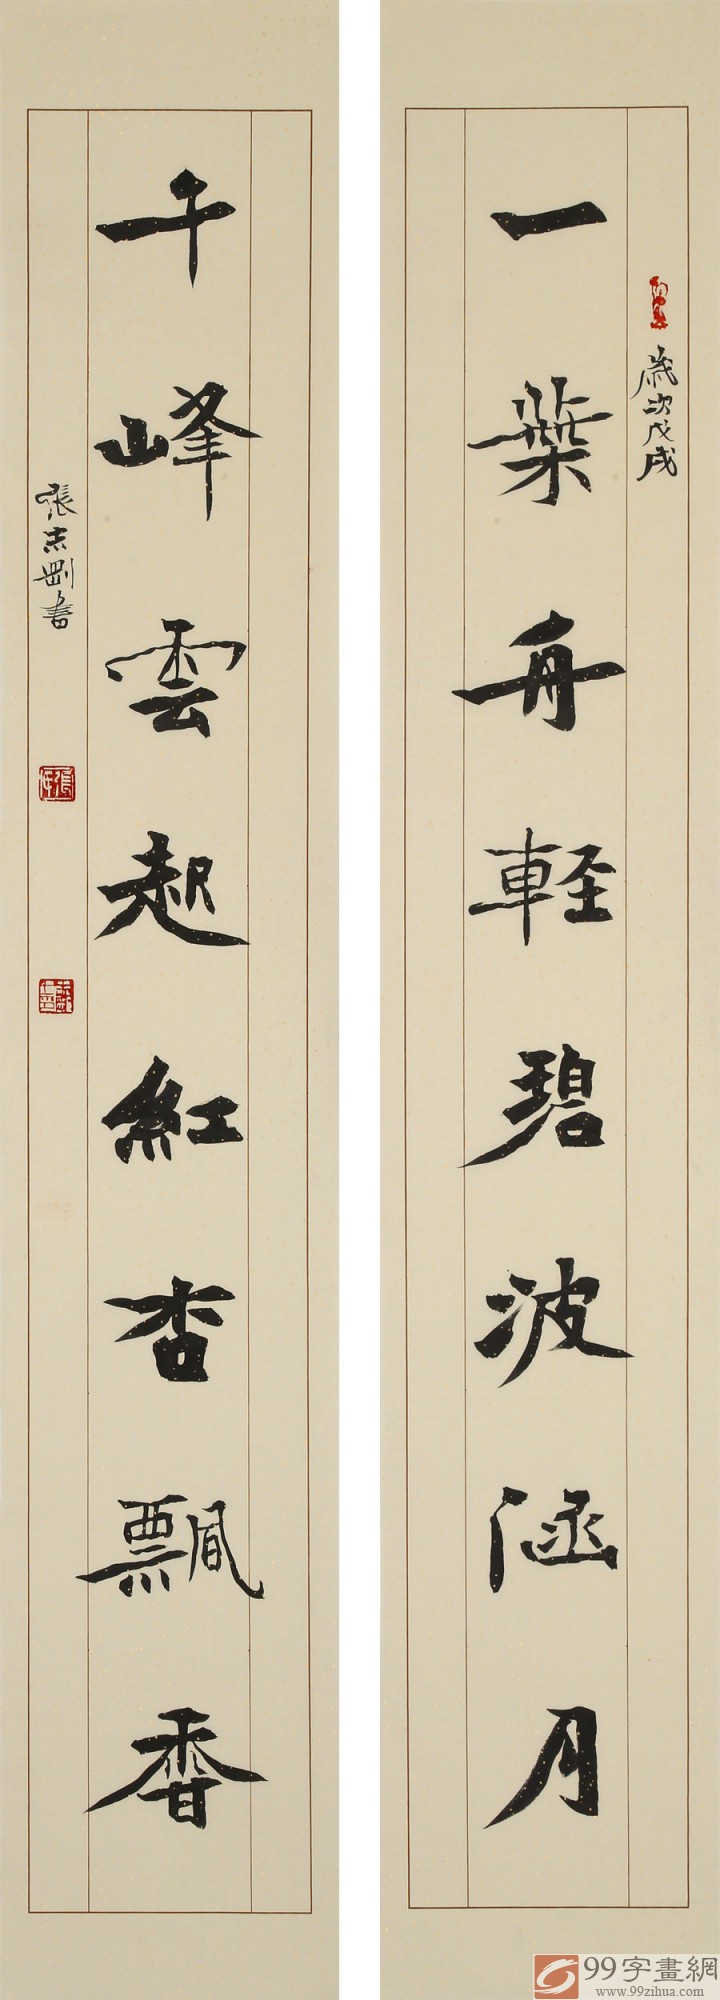 歲次戊戌
一葉舟輕碧波涵月
千峰雲起紅杏飄香
張志剛書
99字畫網
www.99zihua.com